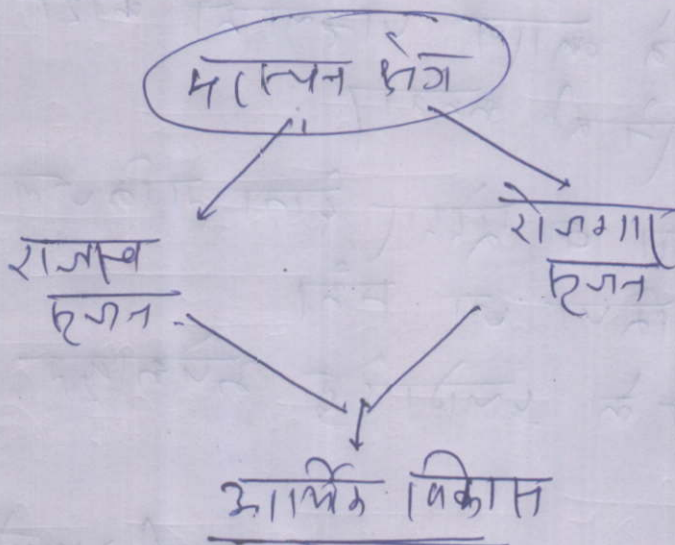 मत्स्यन क्षेत्र
राजस्व
सृजन
रोजगार
सृजन
आर्थिक विकास